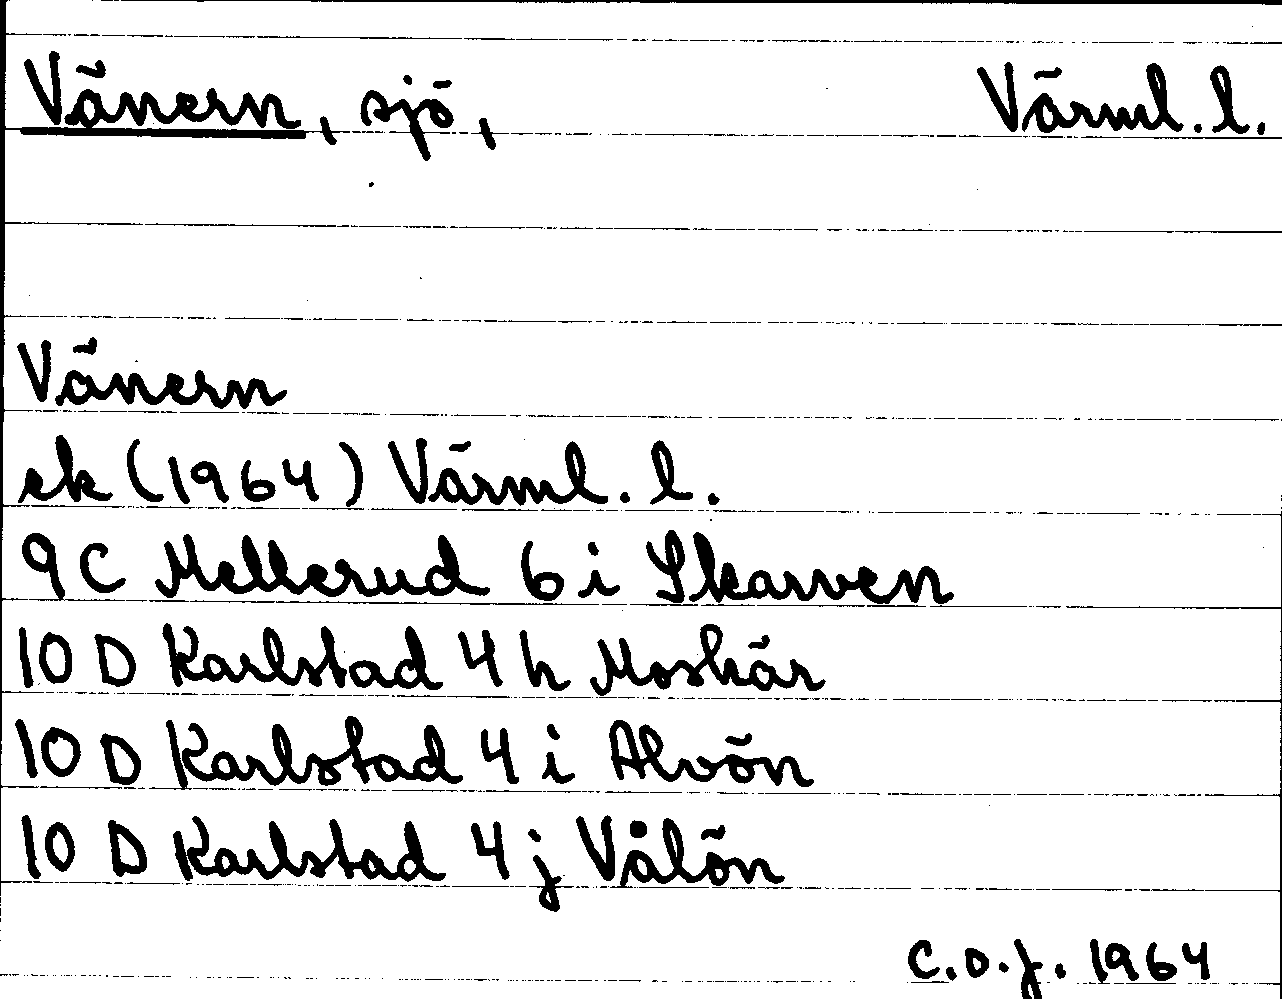 Vänern, sjö, Värml. l.
Vänern
ek (1964) Värml. l.
9 C Mellerud 6 i Skarven
10 D Karlstad 4 h Moskär
10 D Karlstad 4 i Alvön
10 D Karlstad 4 j Vålön
C.O.J. 1964